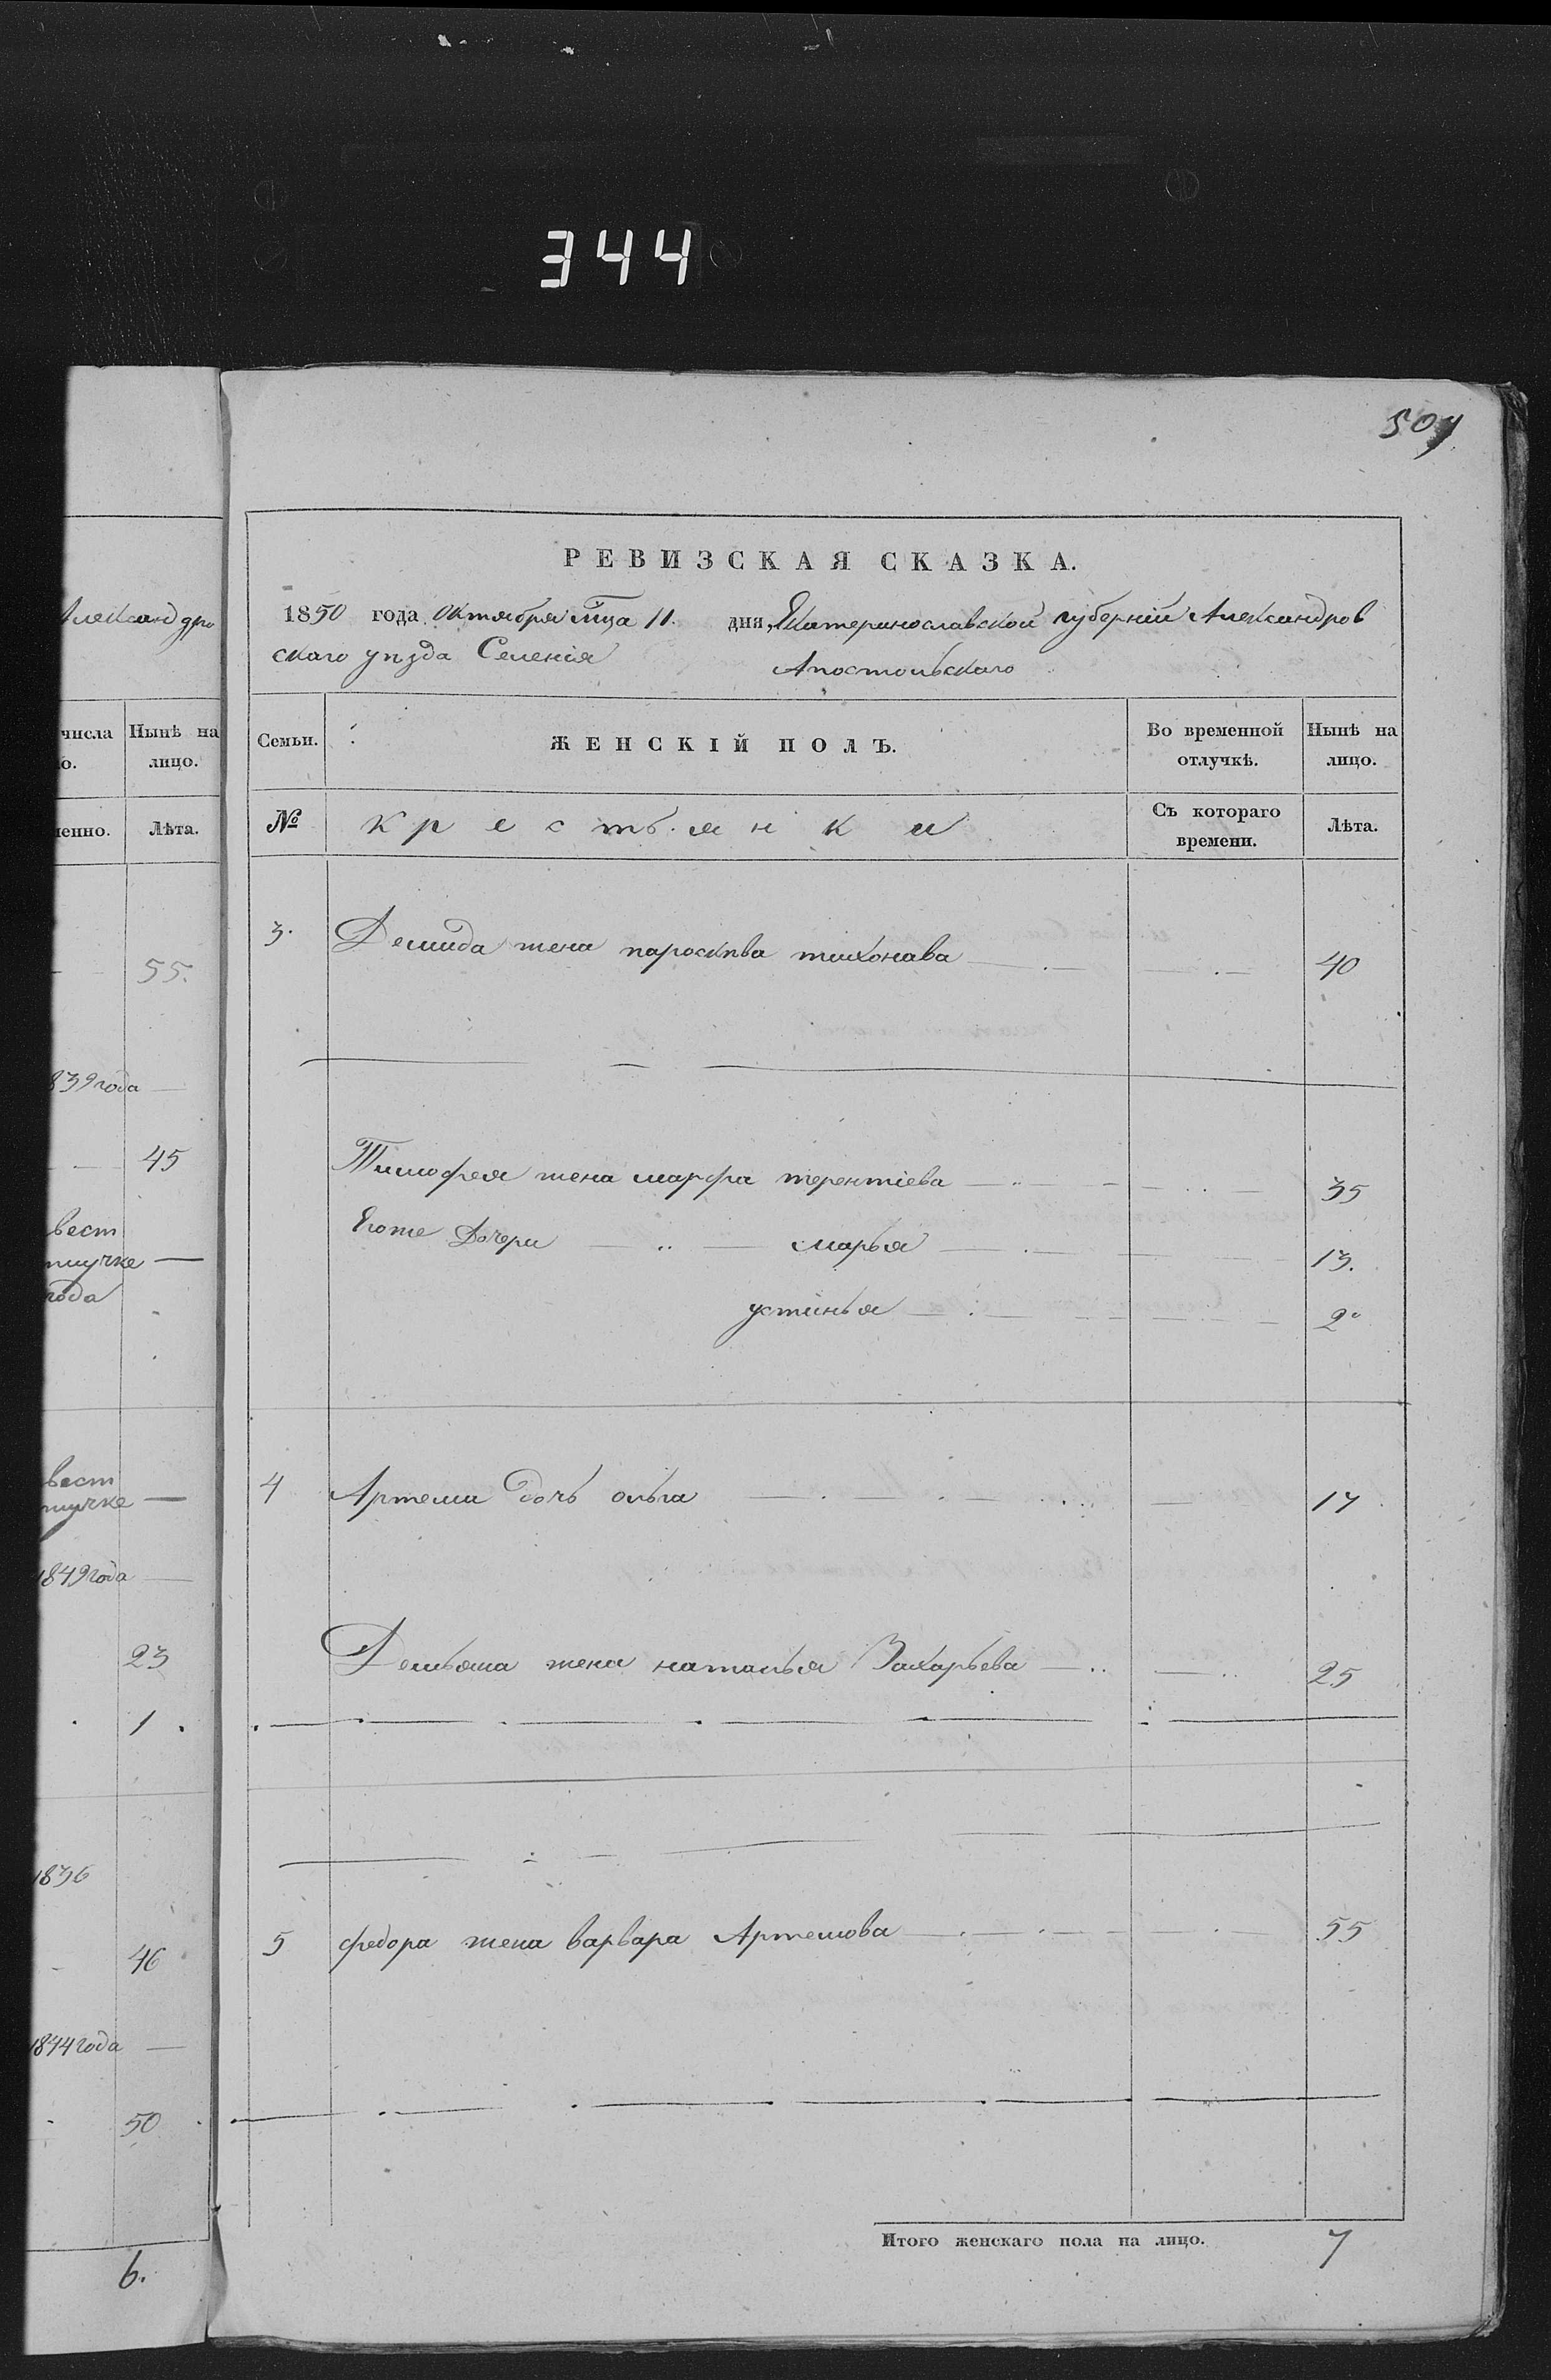 344
507
Александро
числа
о.
Нынѣ на
лицо.
менно.
Лѣта.
55.
839 года
45
вест
лучке
года
вест
лучке
1849 года
23
1
1836
46
1844 года
50
6.
РЕВИЗСКАЯ СКАЗКА.
1850 года Октября мца 11. дня, Екатеринославской губернiи Александров
скаго уезда Селенiя Апостольскаго
Семьи.
ЖЕНСКІЙ ПОЛЪ.
Во временной
отлучкѣ.
Нынѣ на
лицо.
№
крестьянки
Съ котораго
времени.
Лѣта.
3. Демида жена параскева тихонава 40
Тимофея жена марфа терентiева 35
Егоже Дочери марья 13.
устинья 2
4 Артема дочь ольга 17
Демьяна жена наталья Захарьева 25
5 федора жена варвара Артемова 55
Итого женскаго пола на лицо. 7